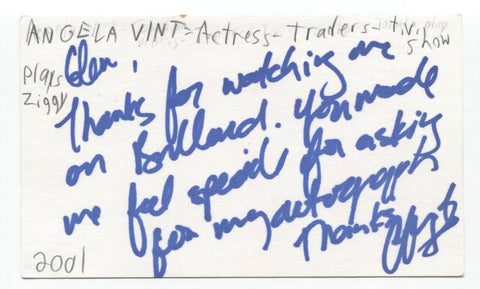 ANGELA VINT - Actress - Traders - t.v. show
Plays Ziggy
Glen,
Thanks for watching me
on Bollard. You made
me feel special for asking
for my autograph
Thanks
2001